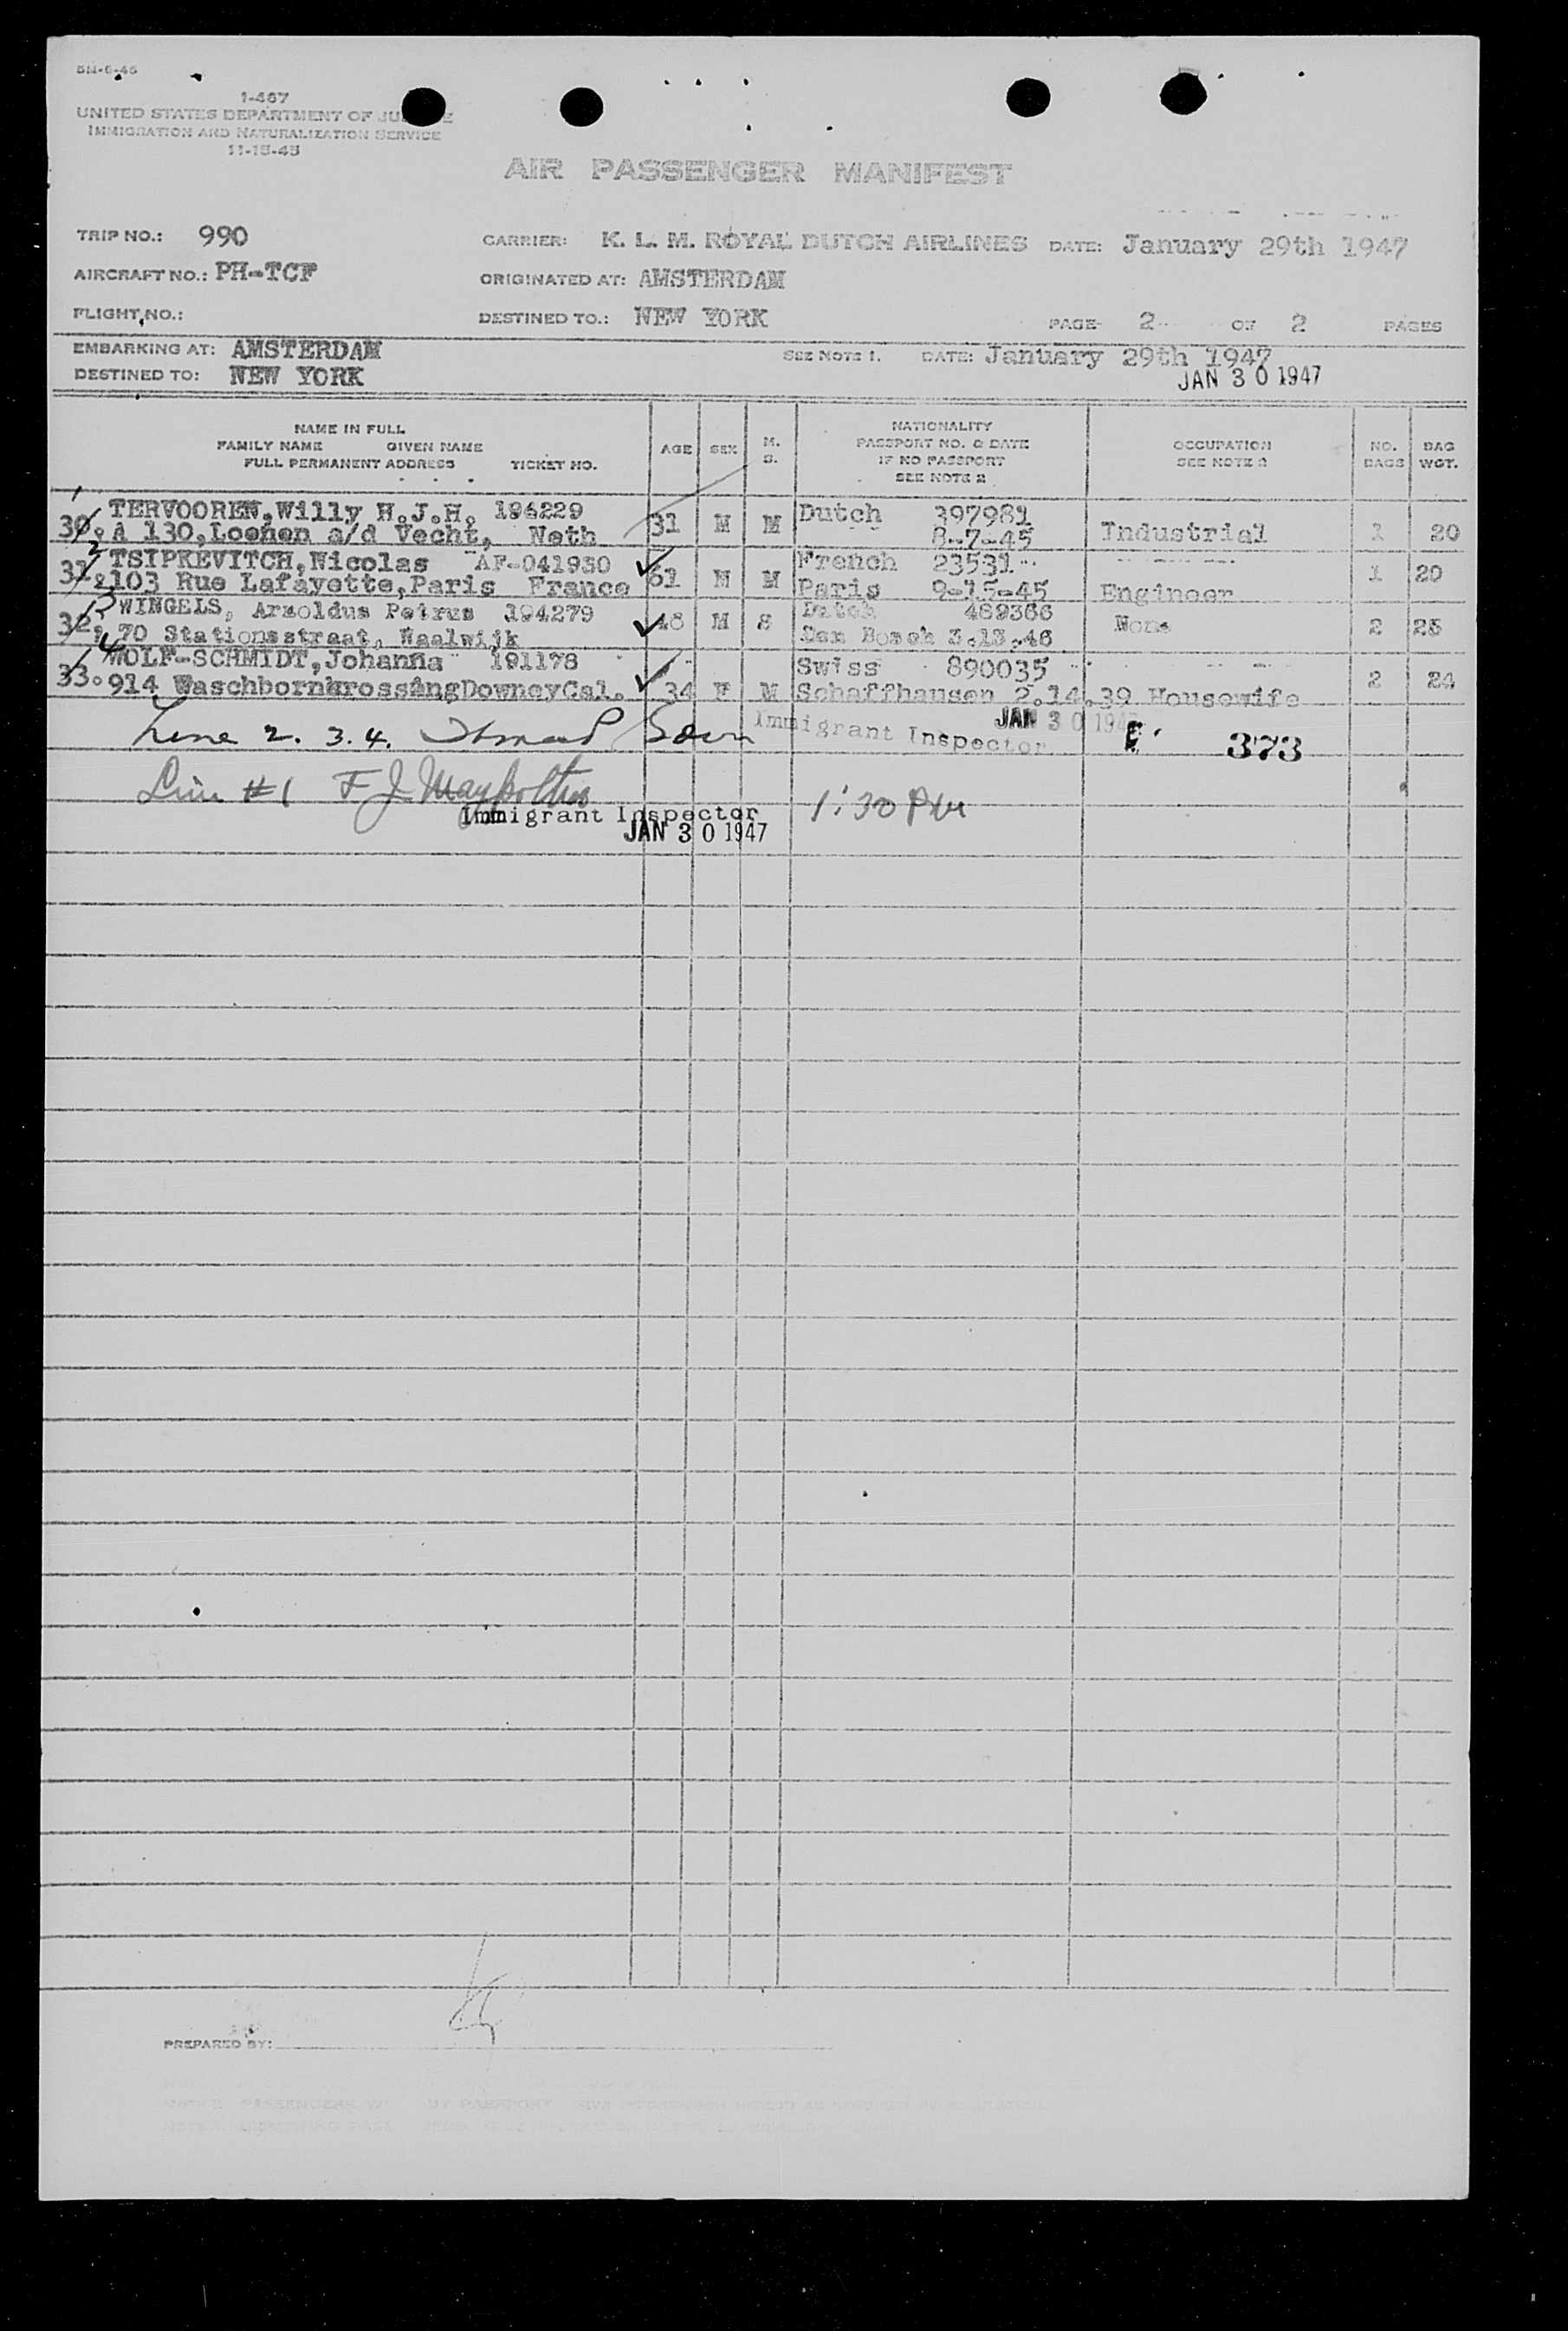 1-467
UNITED STATES DEPARTMENT OF
IMMIGRATION AND NATURALIZATION SERVICE
11-15-45
AIR PASSENGER MANIFEST
TRIP NO.: 990 CARRIER: K. L. M. ROYAL DUTCH AIRLINES DATE: January 29th 1947
AIRCRAFT NO.: PH-TCF ORIGINATED AT: AMSTERDAM
FLIGHT NO.: DESTINED TO.: NEW YORK PAGE 2 OF 2 PAGES
EMBARKING AT: AMSTERDAM SEE NOTE 1. DATE: January 29th 1947
DESTINED TO: NEW YORK JAN 30 1947
NAME IN FULL
FAMILY NAME GIVEN NAME
FULL PERMANENT ADDRESS TICKET NO.
AGE SEX M. S.
NATIONALITY
PASSPORT NO. & DATE
IF NO PASSPORT
SEE NOTE 2
OCCUPATION
SEE NOTE 2
NO. BAGS
BAG WGT.
1 TERVOOREN, Willy H.J.H. 194229 Dutch 397981
30. A 130, Loenen a/d Vecht, Neth 31 M M 8-7-45 Industrial 1 20
2 TSIPKEVITCH, Nicolas AF-041930 French 23531
31. 103 Rue Lafayette, Paris France 61 M M Paris 9-15-45 Engineer 1 20
3 WINGELS, Arnoldus Petrus 194279 Dutch 489366
32. 70 Stationsstraat, Waalwijk 48 M S Den Bosch 3.13.46 None 2 25
4 WOLF-SCHMIDT, Johanna 191178 Swiss 890035
33. 914 WaschbornkrossingDowneyCal. 34 F M Schaffhausen 2.14.39 Housewife 2 24
Line 2. 3. 4. Immigrant Inspector JAN 30 1947 373
Line #1 F J 1:30 PM
Immigrant Inspector
JAN 30 1947
PREPARED BY: